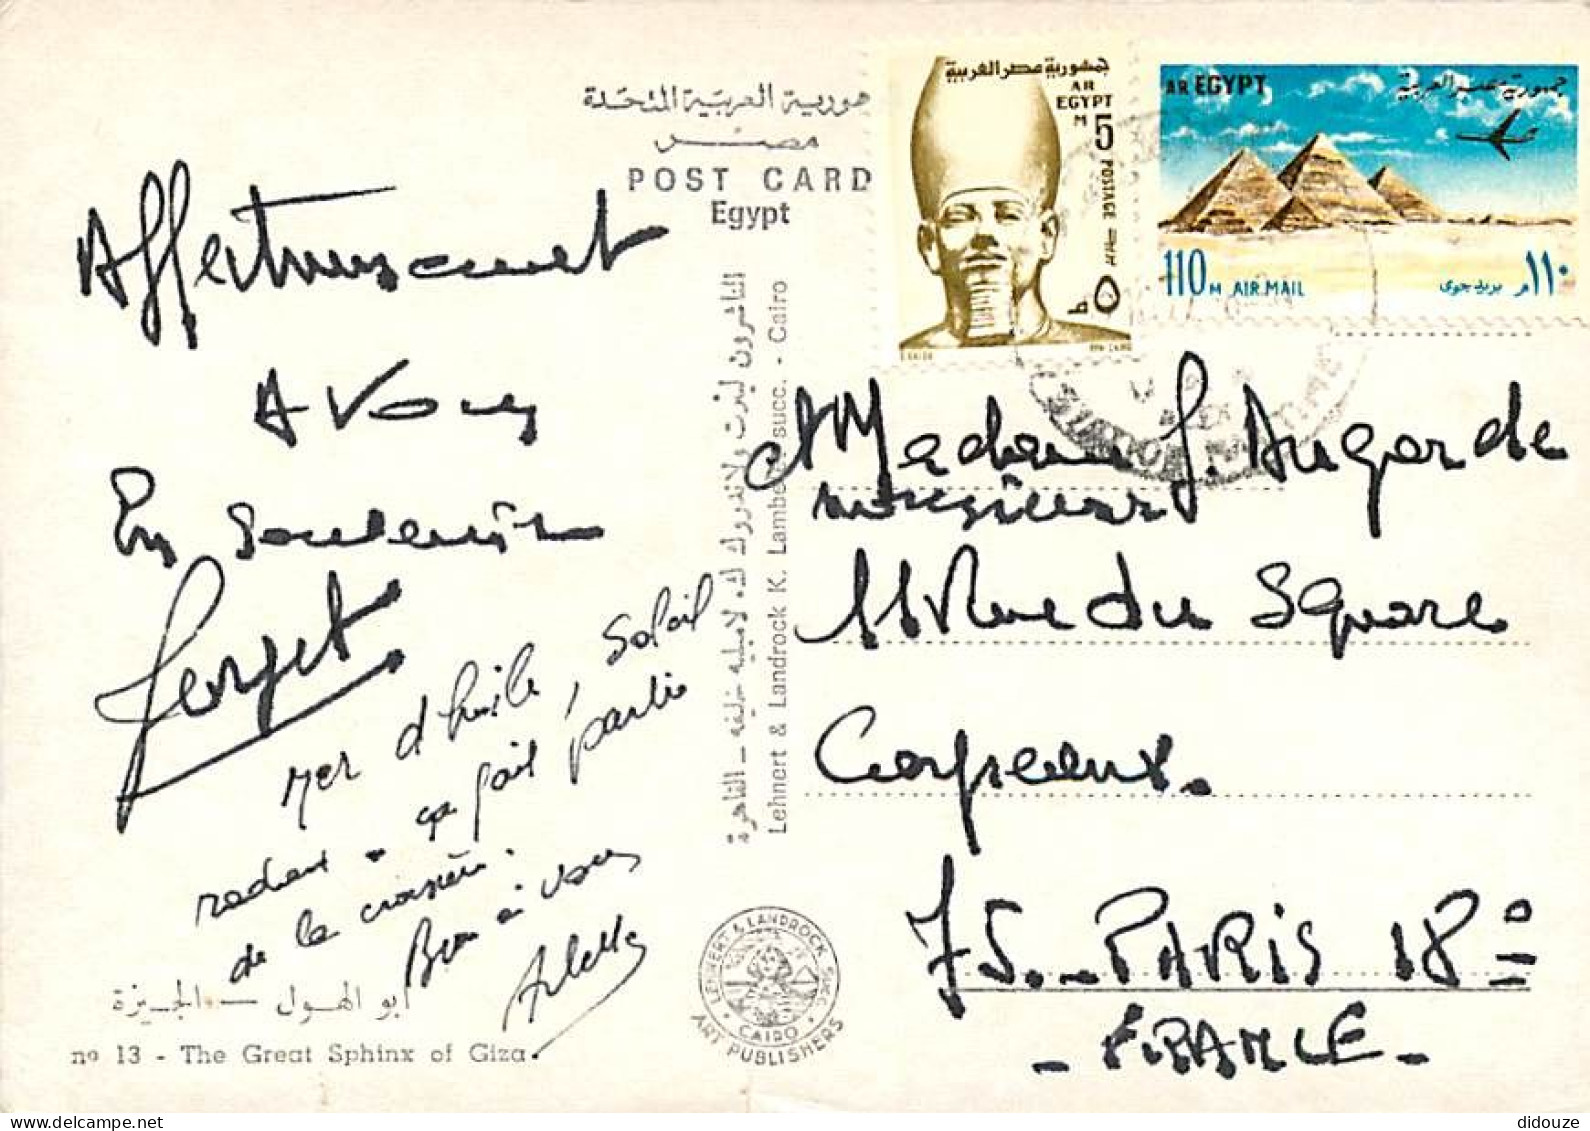 جمهورية العربية المتحدة
مصر
POST CARD
Egypt
جمهورية مصر العربية
AR
EGYPT
M
5
POSTAGE
٥ م
AR EGYPT
جمهورية مصر العربية
110 M AIR.MAIL
بريد جوى
١١٠ م
Affectueusement
A Vous
En Souvenir
Mer d'huile, Soleil
radieux - ça fait partie
de la croisière.
Bien à vous
Arlette
الناشرون لينرت ولاندروك ك. لامبليه خليفه - القاهرة
Lehnert & Landrock K. Lambelet succ. - Cairo
Madame J. Augarde
Monsieur
11 Rue du Square
Carpeaux.
75.-PARIS 18e
- FRANCE -
LEHNERT & LANDROCK SUCC.
CAIRO
ART PUBLISHERS
أبو الهول — الجيزة
nº 13 - The Great Sphinx of Giza.
delcampe.net
didouze